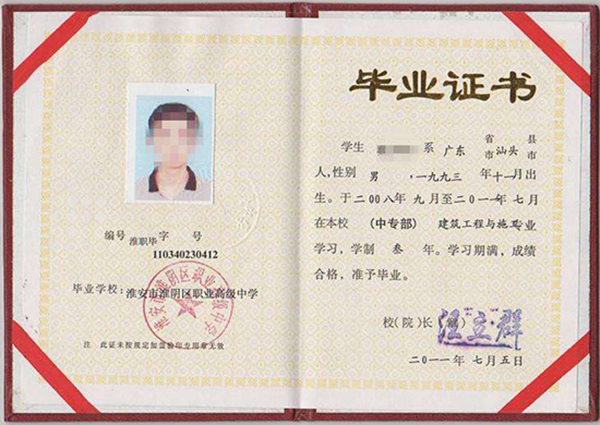 编号 淮职毕字 号
110340230412
毕业学校：淮安市淮阴区职业高级中学
淮安市淮阴区职业高级中学
注 此证未按规定加盖验印专用章无效
毕业证书
学生 系 广东 省市 汕头 县市
人，性别 男 ，一九九三 年 十一月出
生。于二00八年 九月至二0一一年 七月
在本校 （中专部） 建筑工程与施工专业
学习，学制 叁 年。学习期满，成绩
合格，准予毕业。
校（院）长 汪立群
二0一一年七月五日